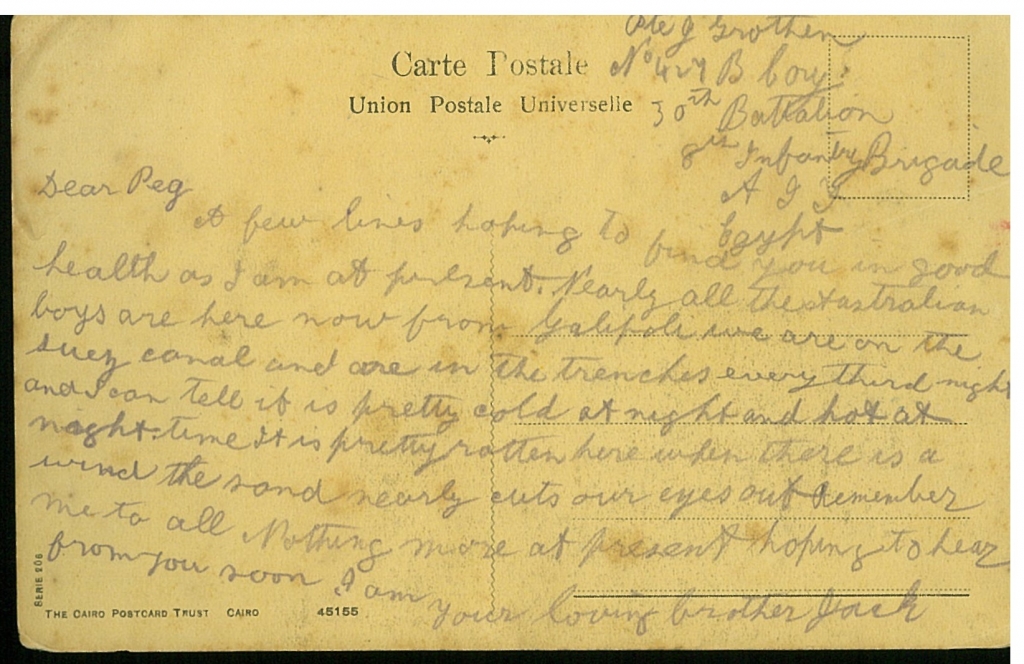 Pte J Grothen
Carte Postale
No 427 B Coy.
Union Postale Universelle
30th Battalion
8th Infantry Brigade
A I F
Egypt
Dear Peg
A few lines hoping to find you in good
health as I am at present. Nearly all the Australian
boys are here now from Galipoli we are on the
Suez canal and are in the trenches every third night
and I can tell it is pretty cold at night and hot at
night time It is pretty rotten here when there is a
wind the sand nearly cuts our eyes out Remember
me to all Nothing more at present hoping to hear
from you soon I am your loving brother Jack
SERIE 206
THE CAIRO POSTCARD TRUST CAIRO 45155